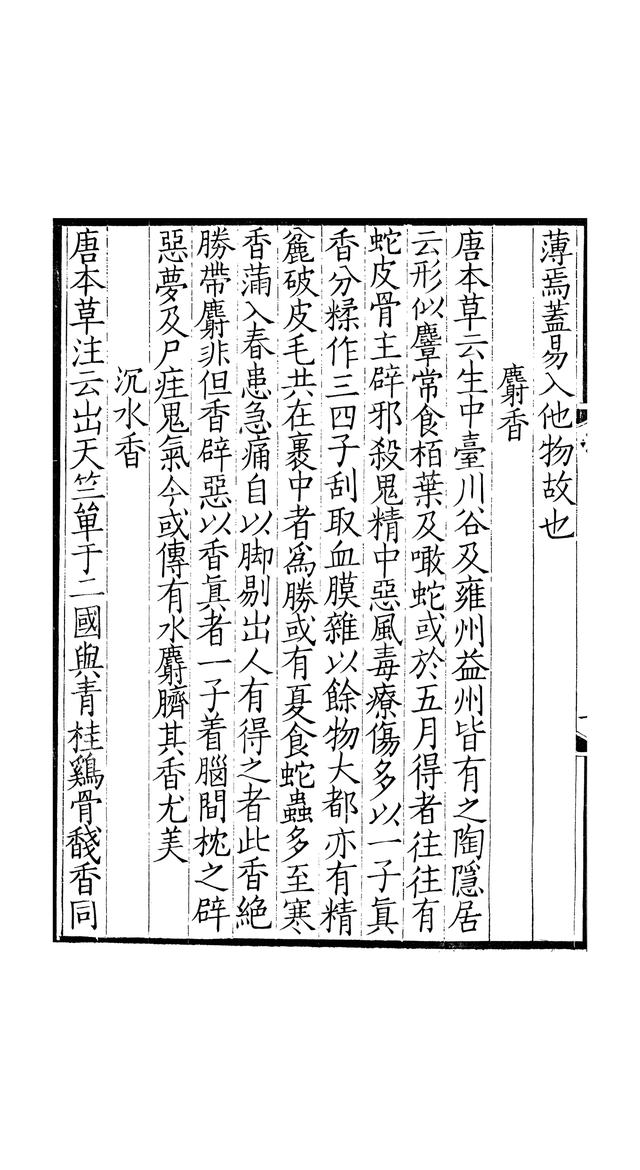 薄焉蓋易入他物故也
麝香
唐本草云生中臺川谷及雍州益州皆有之陶隱居
云形似麞常食栢葉及噉蛇或於五月得者往往有
蛇皮骨主辟邪殺鬼精中惡風毒療傷多以一子真
香分糅作三四子刮取血膜雜以餘物大都亦有精
麄破皮毛共在裹中者爲勝或有夏食蛇蟲多至寒
香滿入春患急痛自以脚剔出人有得之者此香絶
勝帶麝非但香辟惡以香眞者一子着腦間枕之辟
惡夢及尸疰鬼氣今或傳有水麝臍其香尤美
沉水香
唐本草注云出天竺單于二國與青桂鷄骨馢香同